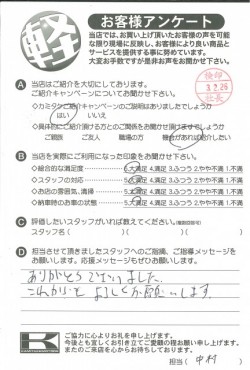 軽
お客様アンケート
当店では、お買い上げ頂いたお客様の声を可能
な限り現場に反映し、お客様により良い商品と
サービスを提供する事に努めています。
大変お手数ですが是非お声をお聞かせ下さい。
検印
3.2.26
店長
A 当店はご紹介を大切にしております。
ご紹介キャンペーンについてお聞かせ下さい。
◇カミタケご紹介キャンペーンのご説明はありましたでしょうか
はい いいえ
◇具体的にご紹介頂ける方とのご関係をお聞かせ頂けますでしょうか
ご親族 ご友人 職場の方 機会があれば紹介したい
B 当店を実際にご利用になった印象をお聞かせ下さい。
◇総合的な満足度 5.大満足 4.満足 3.ふつう 2.やや不満 1.不満
◇スタッフの対応 5.大満足 4.満足 3.ふつう 2.やや不満 1.不満
◇お店の雰囲気、清掃 5.大満足 4.満足 3.ふつう 2.やや不満 1.不満
◇納車時のお車の状態 5.大満足 4.満足 3.ふつう 2.やや不満 1.不満
C 評価したいスタッフがいれば教えてください。
スタッフ名( )( )( )
D 担当させて頂きましたスタッフへのご指導、ご指摘メッセージを
お願いします。応援メッセージもぜひお願いします。
ありがとうございました。
これからも よろしくお願いします。
K
ご協力に心よりお礼を申し上げます。
今後とも宜しくお引き立てご愛顧の程お願い申し上げます。
またのご来店を心からお待ちしております。
担当( 中村 )